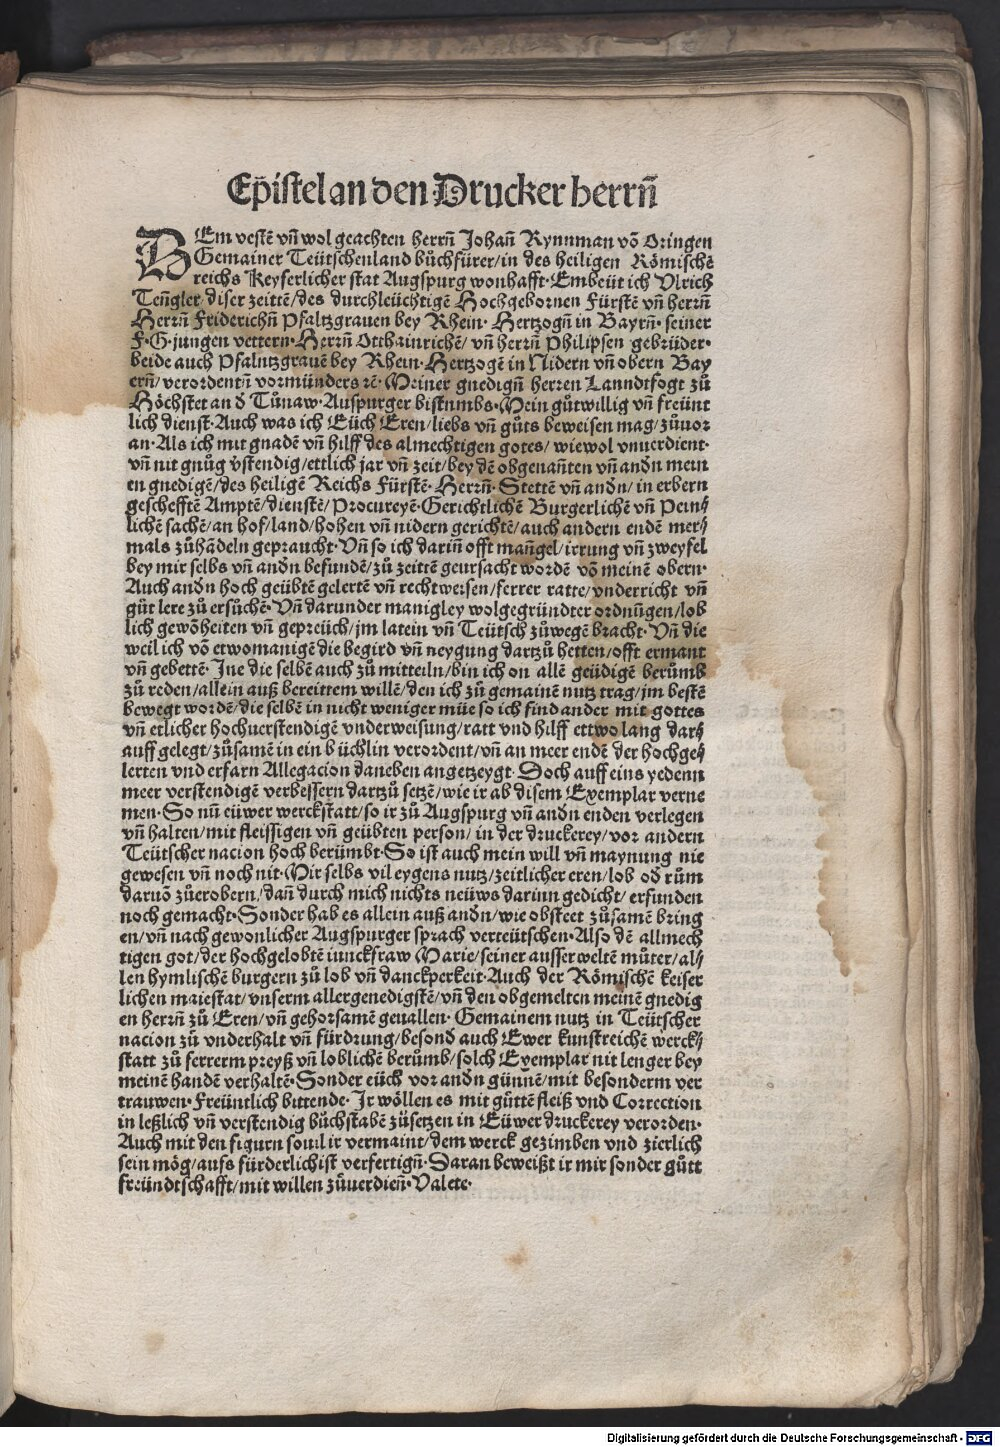 Ep̄istel an den Drucker herrn̄
DEm vestē vn̄ wol geachten herrn̄ Johan̄ Rynnman vō Oringen
Gemainer Teütschenland bůchfürer/in des heiligen Römischē
reichs Keyserlicher stat Augspurg wonhafft· Embeüt ich Vlrich
Ten̄gler/diser zeittē/des durchleüchtigē Hochgebornen Fürstē vn̄ herrn̄
Herrn̄ Friderichn̄ Pfaltzgrauen bey Rhein· Hertzogn̄ in Bayrn̄· seiner
F·G·jungen vettern·Herrn̄ Otthainrichē/ vn̄ herrn̄ Philipsen gebrüder·
beide auch Pfalntzgrauē bey Rhein·Hertzogē in Nidern vn̄ obern Bay
ern̄/verordentn̄ vormünders rē·Meiner gnedign̄ herren Lanndtfogt zů
Höchstet an d̄ Tůnaw·Auspurger bistumbs·Mein gůtwillig vn̄ freünt
lich dienst·Auch was ich Eüch Eren/liebs vn̄ gůts beweisen mag/zůuor
an·Als ich mit gnadē vn̄ hilff des almechtigen gotes/ wiewol vnuerdient·
vn̄ nit gnůg v̄stendig/ettlich jar vn̄ zeit/bey dē obgenan̄ten vn̄ andn̄ mein
en gnedigē/des heiligē Reichs Fürstē· Herrn̄· Stettē vn̄ andn̄/in erbern
geschefftē Amptē/dienstē/Procureyē·Gerichtlichē Burgerlichē vn̄ Pein⸗
lichē sachē/an hof/land/hohen vn̄ nidern gerichtē/auch andern endē mer⸗
mals zůhādeln gepraucht·Vn̄ so ich darin̄ offt man̄gel/irrung vn̄ zweyfel
bey mir selbs vn̄ andn̄ befundē/zů zeittē geursacht wordē vō meinē obern·
Auch andn̄ hoch geübtē gelertē vn̄ rechtweisen/ferrer ratte/vnderricht vn̄
gůt lere zů ersůchē·Vn̄ darunder manigley wolgegründter ordnūgen/lob
lich gewōheiten vn̄ gepreüch/jm latein vn̄ Teütsch zůwegē bracht·Vn̄ die
weil ich vō etwomanigē die begird vn̄ neygung dartzů hetten/offt ermant
vn̄ gebettē· Jne die selbē auch zů mitteiln/bin ich on allē geüdigē berůmb
zů reden/allein auß bereittem willē/den ich zů gemainē nutz trag/jm bestē
bewegt wordē/die selbē in nicht weniger müe so ich find ander mit gottes
vn̄ etlicher hochuerstendigē vnderweisung/ratt vnd hilff ettwo lang dar⸗
auff gelegt/zůsamē in ein büchlin verordent/vn̄ an meer endē der hochge⸗
lerten vnd erfarn Allegacion daneben angetzeygt·Doch auff eins yedenn
meer verstendigē verbessern dartzů setzē/wie ir ab disem Exemplar verne
men·So nū eüwer werckstatt/so ir zů Augspurg vn̄ andn̄ enden verlegen
vn̄ halten/mit fleissigen vn̄ geübten person/in der druckerey/vor andern
Teütscher nacion hoch berümbt·So ist auch mein will vn̄ maynung nie
gewesen vn̄ noch nit·Mir selbs vil eygens nutz/zeitlicher eren/lob od̄ rům
daruō zůerobern/dan̄ durch mich nichts neüws darinn gedicht/erfunden
noch gemacht·Sonder hab es allein auß andn̄/wie obsteet zůsamē bring
en/vn̄ nach gewonlicher Augspurger sprach verteütschen·Also dē allmech
tigen got/der hochgelobtē iunckfraw Marie/seiner ausserweltē můter/al⸗
len hymlischē burgern zů lob vn̄ danckperkeit·Auch der Römischē keiser
lichen maiestat/vnserm allergenedigstē/vn̄ den obgemelten meinē gnedig
en herrn̄ zů Eren/vn̄ gehorsamē geuallen· Gemainem nutz in Teütscher
nacion zů vnderhalt vn̄ fürdrung/besond̄ auch Ewer kunstreichē werck⸗
statt zů ferrerm preyß vn̄ loblichē berůmb/solch Exemplar nit lenger bey
meinē handē verhaltē·Sonder eüch vor andn̄ gün̄nē/mit besonderm ver
trauwen·Freüntlich bittende·Jr wöllen es mit gůttē fleiß vnd Correction
in leßlich vn̄ verstendig bůchstabē zůsetzen in Eüwer druckerey verorden·
Auch mit den figurn souil ir vermaint/dem werck gezimben vnd zierlich
sein mög/aufs fürderlichist verfertign̄·Daran beweißt ir mir sonder gůtt
freündtschafft/mit willen zůuerdien̄·Valete·
Digitalisierung gefördert durch die Deutsche Forschungsgemeinschaft · DFG